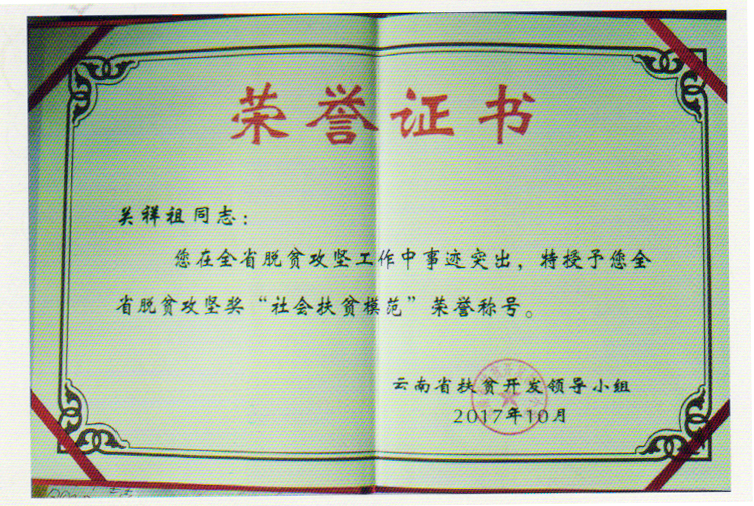 荣誉证书
关祥祖同志：
您在全省脱贫攻坚工作中事迹突出，特授予您全
省脱贫攻坚奖“社会扶贫模范”荣誉称号。
云南省扶贫开发领导小组
2017年10月